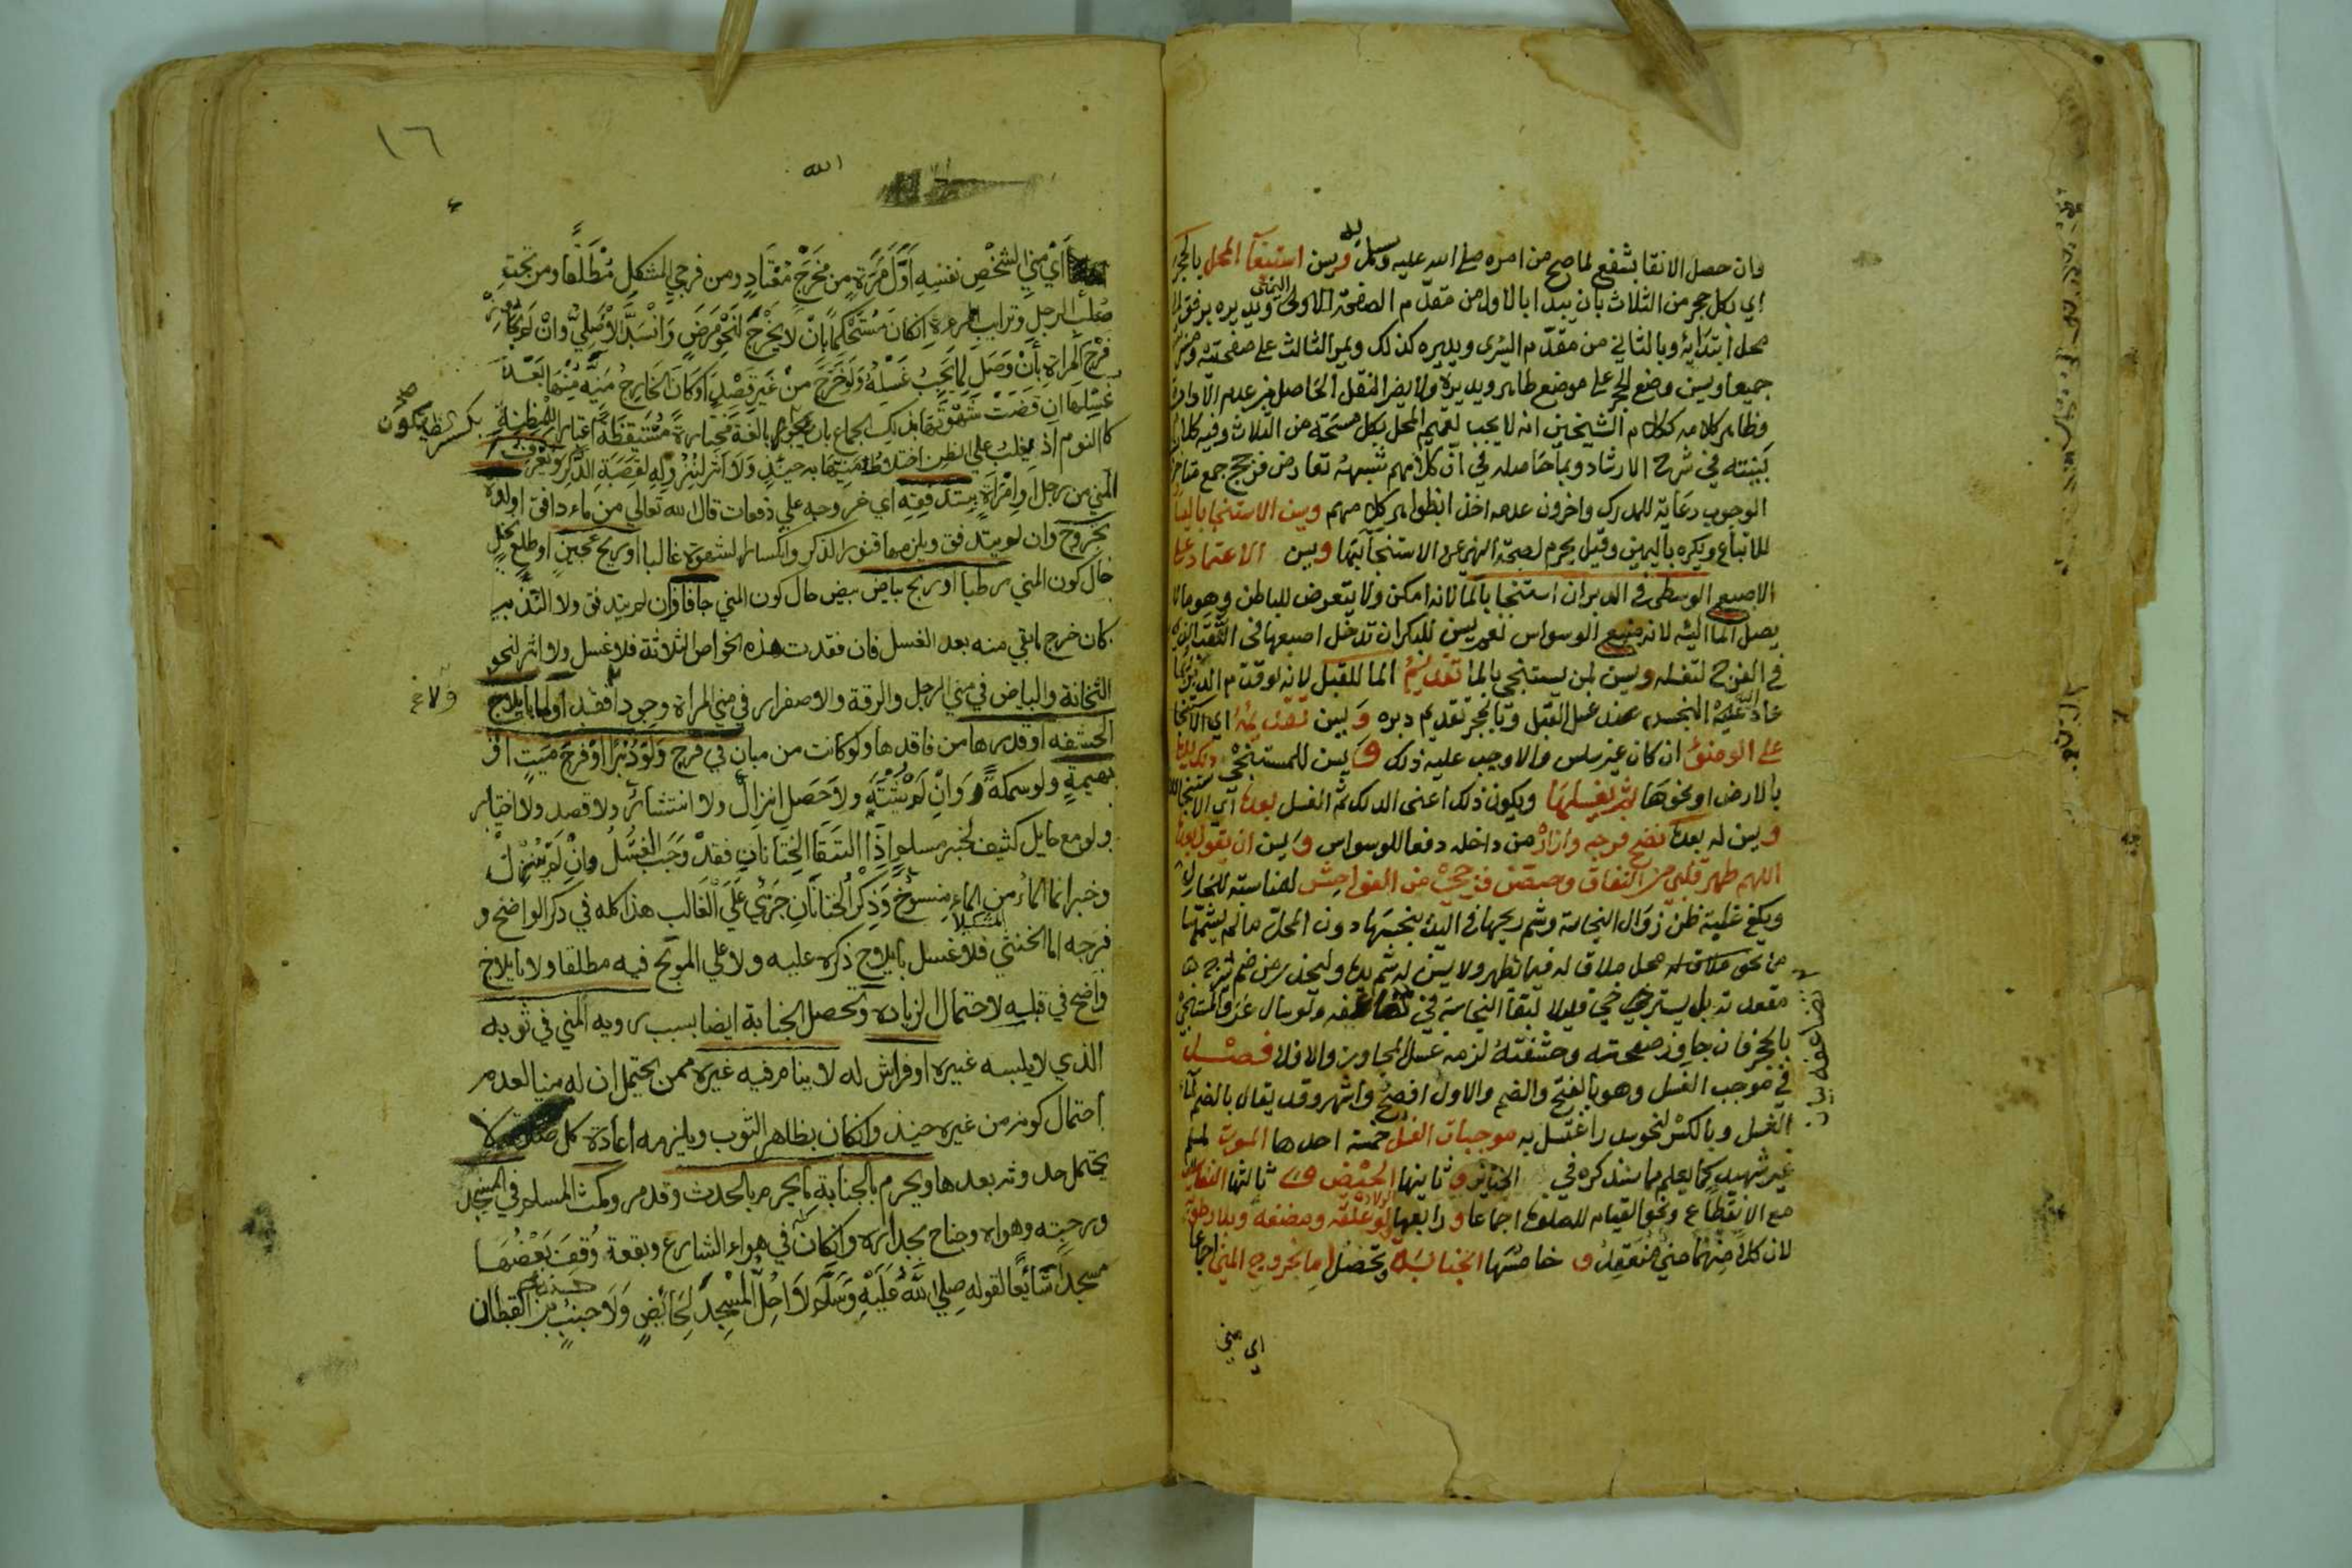 فان حصل الانقا بشفع لما صح من امره صلى الله عليه وسلم به ويسن استيعاب المحل بالحجر
اي بكل حجر من الثلاث بان يبدا بالاول من مقدم الصفحة الاولى اليمنى ويديره برفق الى
محل ابتدائه وبالثاني من مقدم اليسرى ويديره كذلك ويمر الثالث على صفحتيه ومسربته
جميعا ويسن وضع الحجر على موضع طاهر ويديره ولا يضر النقل الحاصل من عدم الادارة
وظاهر كلامه ككلام الشيخين انه لا يجب تعميم المحل بكل مسحة من الثلاث وفيه كلام
بينته في شرح الارشاد وبما حاصله في ان كلامهم شبهه تعارض فرجح جمع متاخرون
الوجوب رعاية للمدرك واخرون عدمه اخذا بظواهر كلامهم ويسن الاستنجا باليسار
للاتباع ويكره باليمين وقيل يحرم لصحة النهي عن الاستنجا بها ويسن الاعتماد على
الاصبع الوسطى في الدبر ان استنجا بالما لانه امكن ولا يتعرض للباطن وهو ما لا
يصل الما اليه لانه منبع الوسواس نعم يسن للبكر ان تدخل اصبعها في الثقب الذي
في الفرج لتغسله ويسن لمن يستنجي بالما تقديم الما للقبل لانه لو قدم الدبر ربما
عاد عليه النجس عند غسل القبل وبالحجر تقديم دبره ويسن تقديمه اي الاستنجا
على الوضوء ان كان غير سلس والا وجب عليه ذلك ويسن للمستنجي دلك يده
بالارض او نحوها ثم يغسلها ويكون ذلك اعني الدلك ثم الغسل بعده اي الاستنجا
ويسن له بعده نضح فرجه وازاره من داخله دفعا للوسواس ويسن ان يقول بعده
اللهم طهر قلبي من النفاق وحصن فرجي من الفواحش لمناسبته للحال
ويكفي غلبة ظن زوال النجاسة وشم ريحها في اليد ينجسها دون المحل ما لم يشمها
من نحو ملاقاة محل ملاق له فيما يظهر ولا يسن له شم يده وليحذر من ضم شرج
مقعدته بل يسترخي قليلا لبقا النجاسة في تضاعيفه ولو سال عرق المستنجي
بالحجر فان جاوز صفحته وحشفته لزمه غسل المجاوز والا فلا فصل
في موجب الغسل وهو بالفتح والضم والاول افصح واشهر وقد يقال بالضم لماء
الغسل وبالكسر لنحو سدر اغتسل به موجبات الغسل خمسة احدها الموت لمسلم
غير شهيد كما يعلم مما سنذكره في الجنائز وثانيها الحيض و ثالثها النفاس
مع الانقطاع ونحو القيام للصلوة اجماعا ورابعها الولادة ولو علقة ومضغة وبلا رطوبة
لان كلا منهما مني منعقد و خامسها الجنابة وتحصل اما بخروج المني اجماعا
اي مني
تضاعيفه بيان
١٦
الله
اي مني الشخص نفسه اول مرة من مخرج معتاد ومن فرجي المشكل مطلقا ومن تحت
صلب الرجل وترايب المرءة ان كان مستحكما بان لا يخرج لنحو مرض وانسد الاصلي وان لم يجاوز
فرج المراة بان وصل لما يجب غسله ولو خرج من غير قصد او كان الخارج منيه منها بعد
غسلها ان قضت شهوتها بذلك الجماع بان تكون بالغة مختارة مستيقظة ثم اعتبار المظنة
كالنوم اذ يغلب على الظن اختلاط منيها به حينئذ ولا اثر لنزوله لقصبة الذكر ويعرف
المني من رجل او امراة بتدفقه اي خروجه على دفعات قال الله تعالى من ماء دافق او لذة
بخروج وان لم يتدفق ويلزمها فتور الذكر وانكسار الشهوة غالبا او ريح عجين او طلع نخل
حال كون المني رطبا او ريح بياض بيض حال كون المني جافا وان لم يتدفق ولا التذ به
كان خرج ما بقي منه بعد الغسل فان فقدت هذه الخواص الثلاثة فلا غسل ولا اثر لنحو
الثخانة والبياض في مني الرجل والرقة والاصفرار في مني المراة وجودا وفقدا واما بايلاج
الحشفة او قدرها من فاقدها ولو كانت من مبان في فرج ولو دبرا او فرج ميت او
بهيمة ولو سمكة وان لم يشته ولا حصل انزال ولا انتشار ولا قصد ولا اختيار
ولو مع حايل كثيف لخبر مسلم اذا التقا الختانان فقد وجب الغسل وان لم ينزل
وخبر انما الماء من الماء منسوخ وذكر الختانان جري على الغالب هذا كله في ذكر الواضح و
فرجه اما الخنثى المشكل فلا غسل بايلاج ذكره عليه ولا على المولج فيه مطلقا ولا بايلاج
واضح في قبله لاحتمال الزيادة وتحصل الجنابة ايضا بسبب رويه المني في ثوبه
الذي لا يلبسه غيره او فراش له لا ينام فيه غيره ممن يحتمل ان له منيا لعدم
احتمال كونه من غيره حينئذ وان كان بظاهر الثوب ويلزمه اعادة كل صلاة لا
يحتمل حدوثه بعدها ويحرم بالجنابة ما يحرم بالحدث وقد مر ومكث المسلم في المسجد
ورحبته وهواه وجناح بجداره وان كان في هواء الشارع وبقعة وقف بعضها
مسجدا شايعا لقوله صلى الله عليه وسلم لا احل المسجد لحائض ولا جنب حسنه ابن القطان